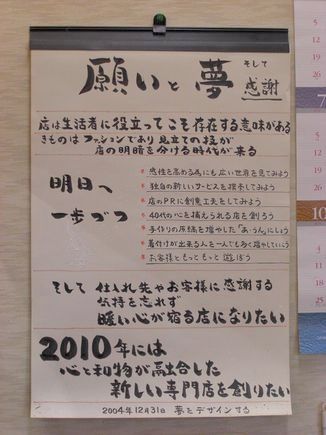 願いと夢 そして感謝
店は生活者に役立ってこそ存在する意味がある
きものはファッションであり見立ての技が
店の明暗を分ける時代が来る
明日へ
一歩づつ
感性を高める為にも広い世界を見てみよう
独自の新しいサービスを探求してみよう
店のPRに創意工夫をしてみよう
40代の心を捕えられる店を創ろう
手作りの原価を増やした「あ・うん」にしよう
着付けが出来る人を一人でも多く増やしていこう
お客様ともっともっと遊ぼう
そして 仕入れ先やお客様に感謝する
気持を忘れず
暖い心が宿る店になりたい
2010年には
心と和物が融合した
新しい専門店を創りたい
2004年12月31日 夢をデザインする
5
12
19
26
7
10
4
11
18
25